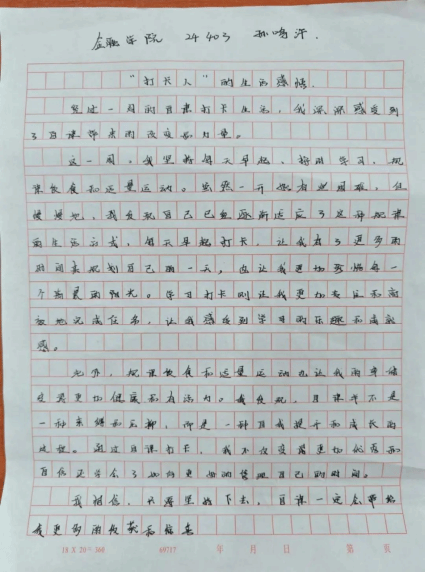 金融学院 24403
“打卡人”的生活感悟
经过一周的自律打卡生活,我深深感受到
了自律带来的改变和力量。
这一周,我坚持每天早起、按时学习、规
律饮食和适量运动。虽然一开始有些困难,但
慢慢地,我发现自己已经逐渐适应了这种规律
的生活方式,每天早起打卡,让我有了更多的
时间来规划自己的一天,也让我更加珍惜每一
个清晨的阳光。学习打卡则让我更加专注和高
效地完成任务,让我感受到学习的乐趣和成就
感。
此外,规律饮食和适量运动也让我的身体
变得更加健康和有活力。我发现,自律并不是
一种束缚和无聊,而是一种自我提升和成长的
过程。通过自律打卡,我不仅变得更加优秀和
自信还学会了如何更好的管理自己的时间。
我相信,只要坚持下去,自律一定会带给
我更多的收获和惊喜
18 X 20 = 360 69717 年 月 日 第 页